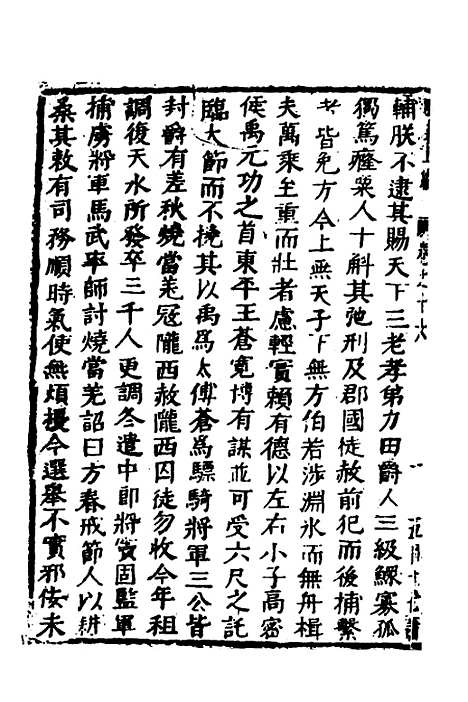 輔朕不逮其賜天下三老孝第力田爵人三級鰥寡孤
獨篤癃粟人十斛其弛刑及郡國徒赦前犯而後捕繫
者皆免方今上無天子下無方伯若涉淵氷而無舟楫
夫萬乘至重而壯者慮輕實賴有德以左右小子高密
侯禹元功之首東平王蒼寬博有謀並可受六尺之託
臨大節而不撓其以禹為太傅蒼為驃騎將軍三公皆
封爵有差秋燒當羌冦隴西赦隴西囚徒勿收今年租
調復天水所發卒三千人更調冬遣中郎將竇固監軍
捕虜將軍馬武率師討燒當羌詔曰方春戒節人以耕
桑其敕有司務順時氣使無煩擾今選舉不實邪佞未